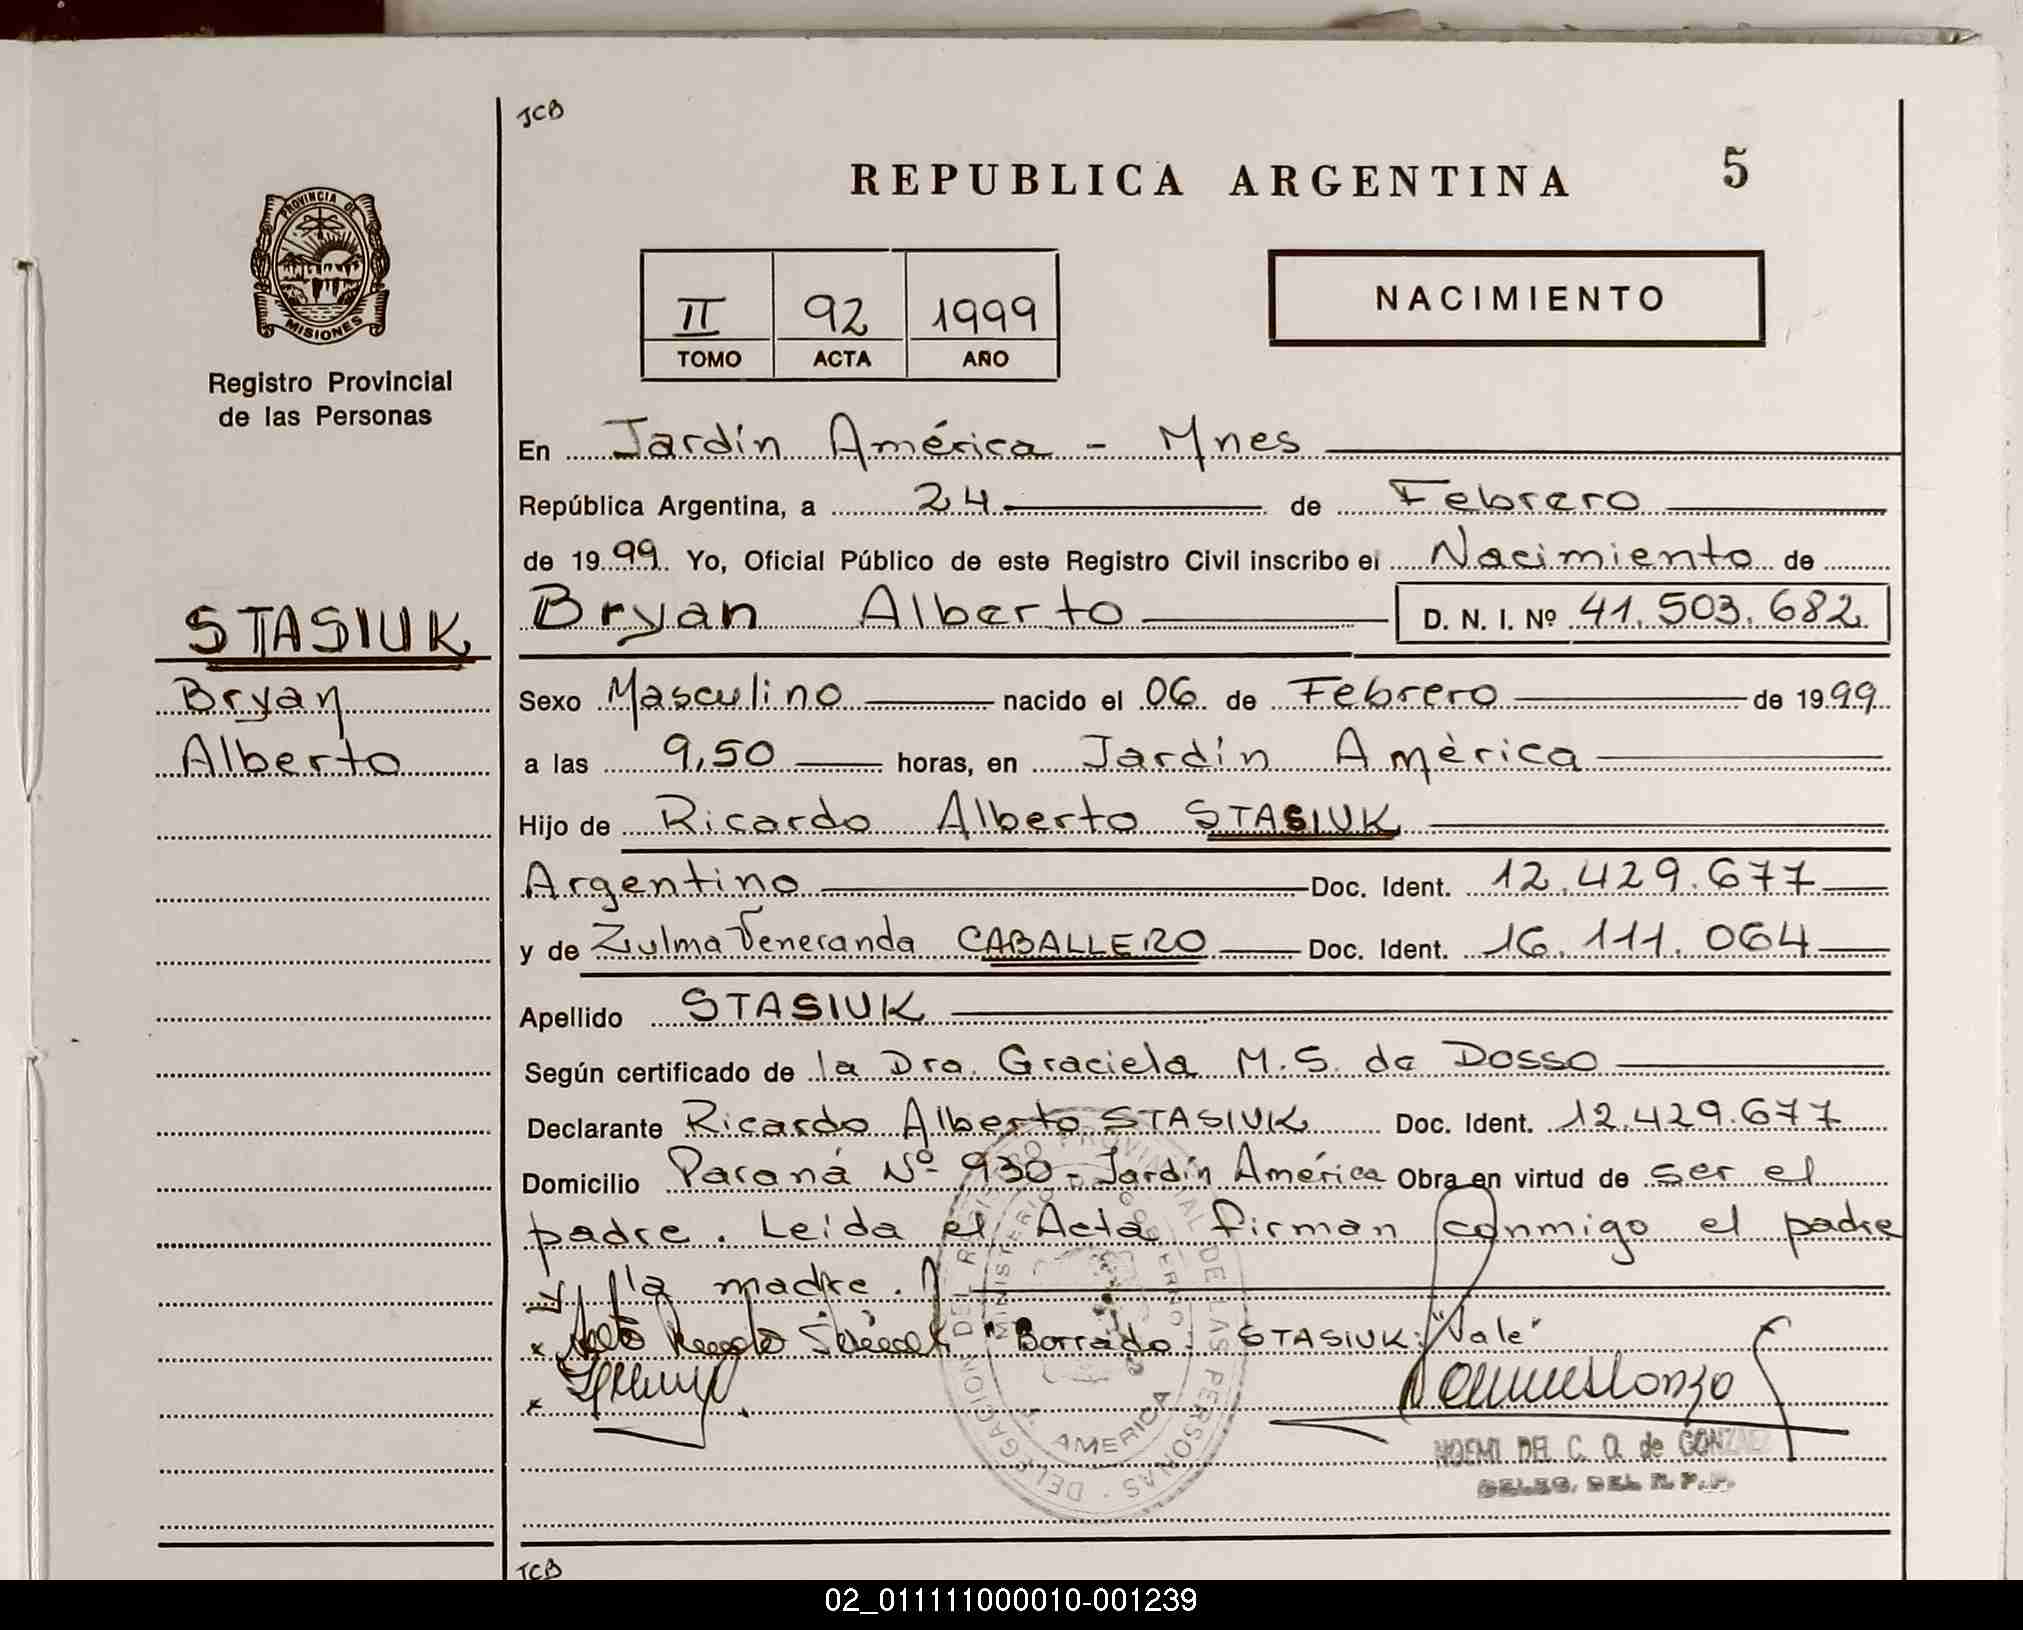 JCB
REPUBLICA ARGENTINA 5
PROVINCIA DE
MISIONES
Registro Provincial
de las Personas
II 92 1999
TOMO ACTA AÑO
NACIMIENTO
En Jardín América - Mnes
República Argentina, a 24 de Febrero
de 1999. Yo, Oficial Público de este Registro Civil inscribo el Nacimiento de
STASIUK
Bryan
Alberto
Bryan Alberto D. N. I. Nº 41.503.682
Sexo Masculino nacido el 06 de Febrero de 1999
a las 9,50 horas, en Jardín América
Hijo de Ricardo Alberto STASIUK
Argentino Doc. Ident. 12.429.677
y de Zulma Veneranda CABALLERO Doc. Ident. 16.111.064
Apellido STASIUK
Según certificado de la Dra. Graciela M.S. de Dosso
Declarante Ricardo Alberto STASIUK Doc. Ident. 12.429.677
Domicilio Paraná Nº 930 - Jardín América Obra en virtud de ser el
padre. Leída el Acta firman conmigo el padre
y la madre.
Borrado: STASIUK: "Vale"
DELEGACION DEL REGISTRO PROVINCIAL DE LAS PERSONAS
MINISTERIO GOBIERNO
AMERICA
NOEMI DEL C. O. de GONZALEZ
DELEG. DEL R. P. P.
JCB
02_011111000010-001239